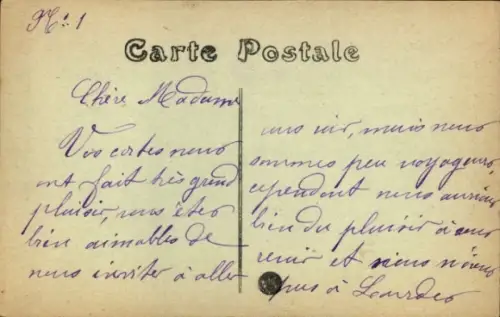 N° 1
Carte Postale
Chère Madame
Vos cartes nous
ont fait très grand
plaisir, vous êtes
bien aimables de
nous inviter à aller
vous voir, mais nous
sommes peu voyageurs,
cependant nous aurions
bien du plaisir à vous
revoir et si nous n'allons
pas à Lourdes